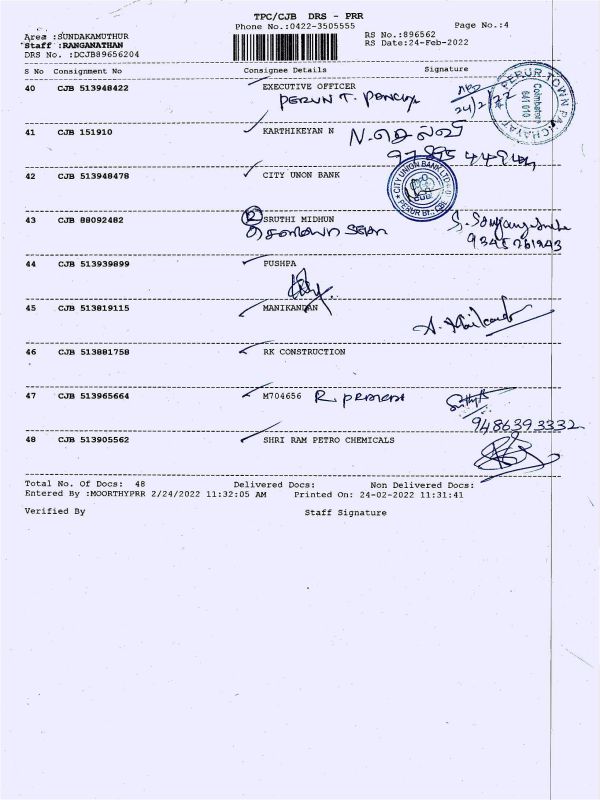 TPC/CJB DRS - PRR
Phone No.:0422-3505555
Page No.:4
Area :SUNDAKAMUTHUR
RS No.:896562
Staff :RANGANATHAN
RS Date:24-Feb-2022
DRS No. :DCJB89656204
S No Consignment No Consignee Details Signature
40 CJB 513948422 EXECUTIVE OFFICER
24/2/22
PERUR TOWN PANCHAYAT
Coimbatore
641 010
41 CJB 151910 KARTHIKEYAN N
N. செல்வி
42 CJB 513948478 CITY UNON BANK
CITY UNION BANK LTD
43 CJB 88092482 SRUTHI MIDHUN
44 CJB 513939899 PUSHPA
45 CJB 513819115 MANIKANDAN
46 CJB 513881758 RK CONSTRUCTION
47 CJB 513965664 M704656
9486393332
48 CJB 513905562 SHRI RAM PETRO CHEMICALS
Total No. Of Docs: 48 Delivered Docs: Non Delivered Docs:
Entered By :MOORTHYPRR 2/24/2022 11:32:05 AM Printed On: 24-02-2022 11:31:41
Verified By Staff Signature